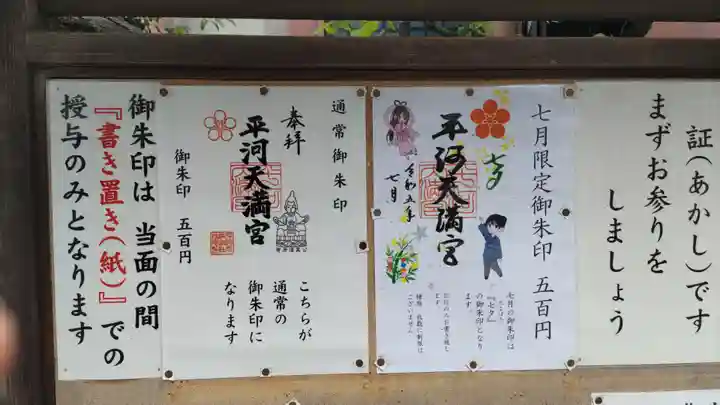 証(あかし)です
まずお参りを
しましょう
七月限定御朱印 五百円
七夕
平河天満宮
令和五年
七月
七月の御朱印は
『七夕』
の御朱印となり
ます。
種類、枚数に制限は
ございません
通常御朱印
奉拝
平河天満宮
御朱印 五百円
こちらが
通常の
御朱印に
なります
御朱印は 当面の間
『書き置き(紙)』での
授与のみとなります